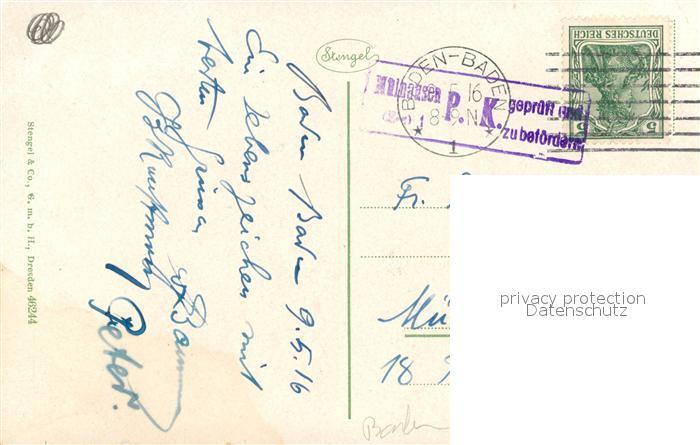 Baden Baden 9.5.16
Ein Lebenszeichen mit
besten Grüssen
Peter.
Stengel & Co., G. m. b. H., Dresden 46244
Stengel
BADEN-BADEN
5.16
8-9N
1
Mülhausen
P. K.
geprüft und
zu befördern
DEUTSCHES REICH
5 5
Fr.
Mü
18
privacy protection
Datenschutz
Baden